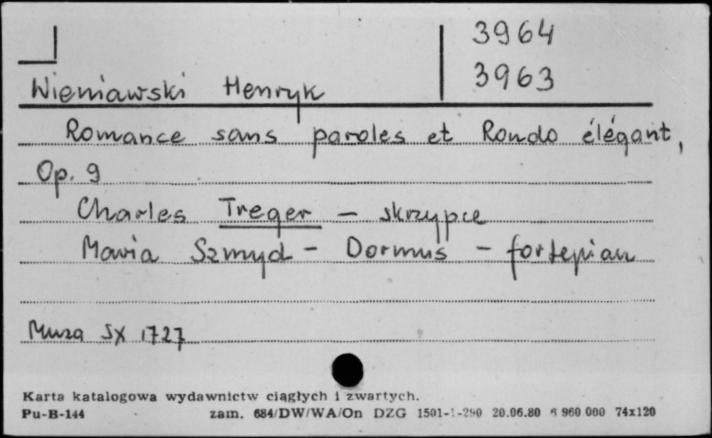 3964
3963
Wieniawski Henryk
Romance sans paroles et Rondo élégant,
Op. 9
Charles Treger - skrzypce
Maria Szmyd - Dormus - fortepian
Muza SX 1727
Karta katalogowa wydawnictw ciągłych i zwartych.
Pu-B-144 zam. 684/DW/WA/On DZG 1501-1-290 20.06.80 960 000 74x120